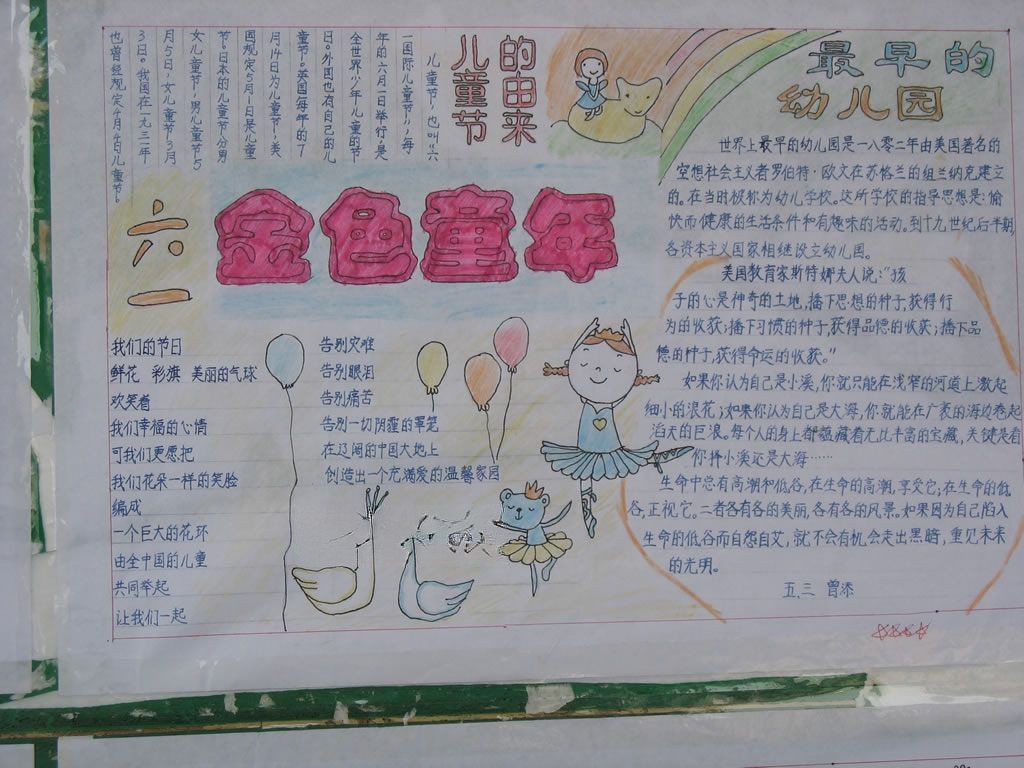 儿童节
的由来
儿童节,也叫“六
一国际儿童节”,每
年的六月一日举行,是
全世界少年儿童的节
日。外国也有自己的儿
童节。英国每年的7
月14日为儿童节,美
国规定5月1日是儿童
节。日本的儿童节分男
女儿童节,男儿童节5
月5日,女儿童节3月
3日。我国在一九三一年
也曾经规定4月4日儿童节。
六
一
金色童年
最早的
幼儿园
世界上最早的幼儿园是一八零二年由美国著名的
空想社会主义者罗伯特·欧文在苏格兰的纽兰纳克建立
的。在当时极称为幼儿学校。这所学校的指导思想是:愉
快而健康的生活条件和有趣味的活动。到十九世纪后半期,
各资本主义国家相继设立幼儿园。
美国教育家斯特娜夫人说:“孩
子的心是神奇的土地,播下思想的种子,获得行
为的收获;播下习惯的种子,获得品德的收获;播下品
德的种子,获得命运的收获。”
如果你认为自己是小溪,你就只能在浅窄的河道上激起
细小的浪花;如果你认为自己是大海,你就能在广袤的海边卷起
滔天的巨浪。每个人的身上都蕴藏着无比丰富的宝藏,关键是看
你择小溪还是大海……
生命中总有高潮和低谷,在生命的高潮,享受它;在生命的低
谷,正视它。二者各有各的美丽,各有各的风景。如果因为自己陷入
生命的低谷而自怨自艾,就不会有机会走出黑暗,重见未来
的光明。
五.三 曾添
我们的节日
鲜花 彩旗 美丽的气球
欢笑着
我们幸福的心情
可我们更愿把
我们花朵一样的笑脸
编成
一个巨大的花环
由全中国的儿童
共同举起
让我们一起
告别灾难
告别眼泪
告别痛苦
告别一切阴霾的罩笼
在辽阔的中国大地上
创造出一个充满爱的温馨家园